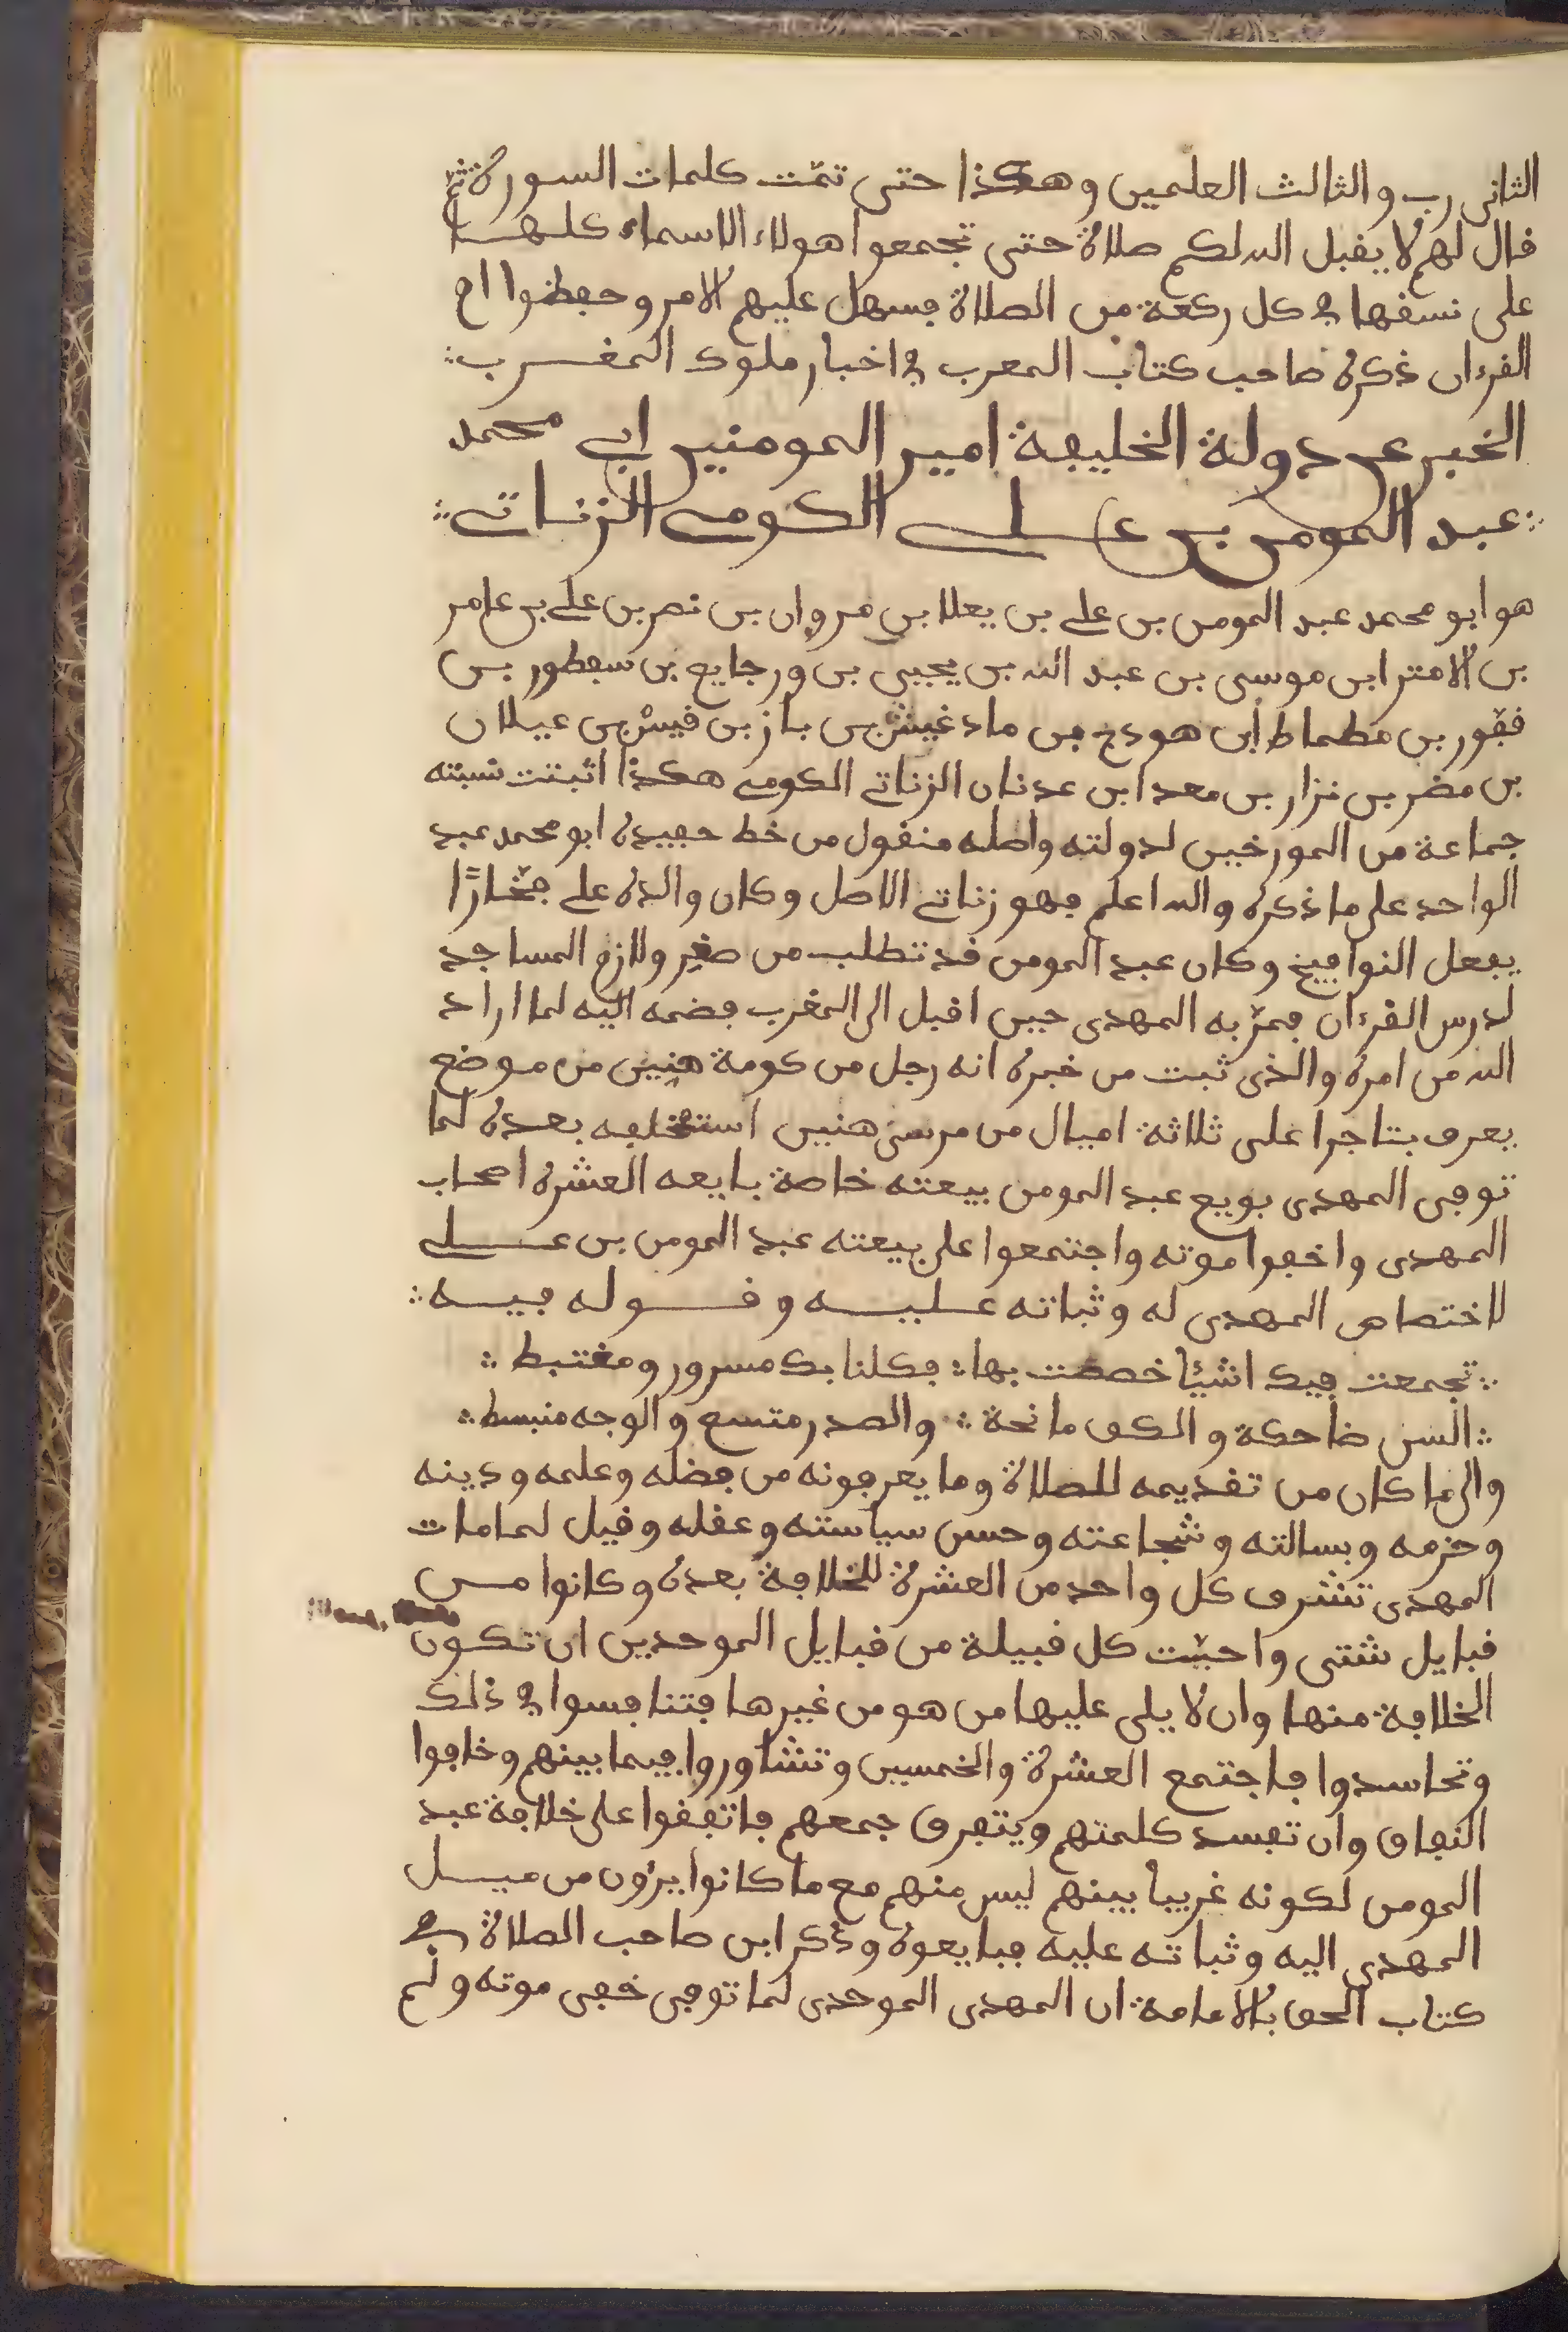 الثانى رب والثالث العلمين وهكذا حتى تمّت كلمات السورة ثم
قال لهم لا يقبل الله لكم صلاة حتى تجمعوا هولاء الاسماء كلها
على نسقها في كل ركعة من الصلاة فسهل عليهم الامر وحفظوا ام
القرءان ذكره صاحب كتاب المعرب في اخبار ملوك المغرب
الخبر عن دولة الخليفة امير المومنين ابي محمد
عبد المومن بن علي الكومي الزناتي
هو ابو محمد عبد المومن بن علي بن يعلا بن مروان بن نصر بن علي بن عامر
بن الامتر ابن موسى بن عبد الله بن يحيى بن ورجايع بن سطفور بن
نفور بن مطماط ابن هودج بن مادغيش بن باز بن قيس بن عيلان
بن مضر بن نزار بن معد ابن عدنان الزناتي الكومي هكذا اثبتت نسبته
جماعة من المورخين لدولته واصله منقول من خط حفيده ابو محمد عبد
الواحد على ما ذكره والله اعلم فهو زناتي الاصل وكان والده علي فخّارًا
يعمل النوافيخ وكان عبد المومن قد تطلب من صغير ولازم المساجد
لدرس القرءان فمرّ به المهدى حين اقبل الى المغرب فضمه اليه لما اراد
الله من امره والذى ثبت من خبره انه رجل من كومة هنين من موضع
يعرف بتاجرا على ثلاثة اميال من مرسى هنين استخلفه بعده لما
توفى المهدى بويع عبد المومن بيعته خاصة بايعه العشرة اصحاب
المهدى واخفوا موته واجتمعوا على بيعته عبد المومن بن علي
لاختصاص المهدى له وثباته عليه وقوله فيه
تجمعت فيك اشيئا خصصت بها فكلنا بك مسرور ومغتبط
السن ضاحكة والكف مانحة والصدر متسع والوجه منبسط
والى ما كان من تقديمه للصلاة وما يعرفونه من فضله وعلمه ودينه
وحزمه وبسالته وشجاعته وحسن سياسته وعقله وقيل لما مات
المهدى تشرف كل واحد من العشرة للخلافة بعده وكانوا من
قبايل شتى واحبّت كل قبيلة من قبايل الموحدين ان تكون
الخلافة منها وان لا يلى عليها من هو من غيرها فتنافسوا في ذلك
وتحاسدوا فاجتمع العشرة والخمسين وتشاوروا فيما بينهم وخافوا
النفاق وان تفسد كلمتهم ويتفرق جمعهم فاتفقوا على خلافة عبد
المومن لكونه غريبا بينهم ليس منهم مع ما كانوا يرون من ميل
المهدى اليه وثباته عليه فبايعوه وذكر ابن صاحب الصلاة في
كتاب الحق بالامامة ان المهدى الموحدى لما توفى خفى موته ولم